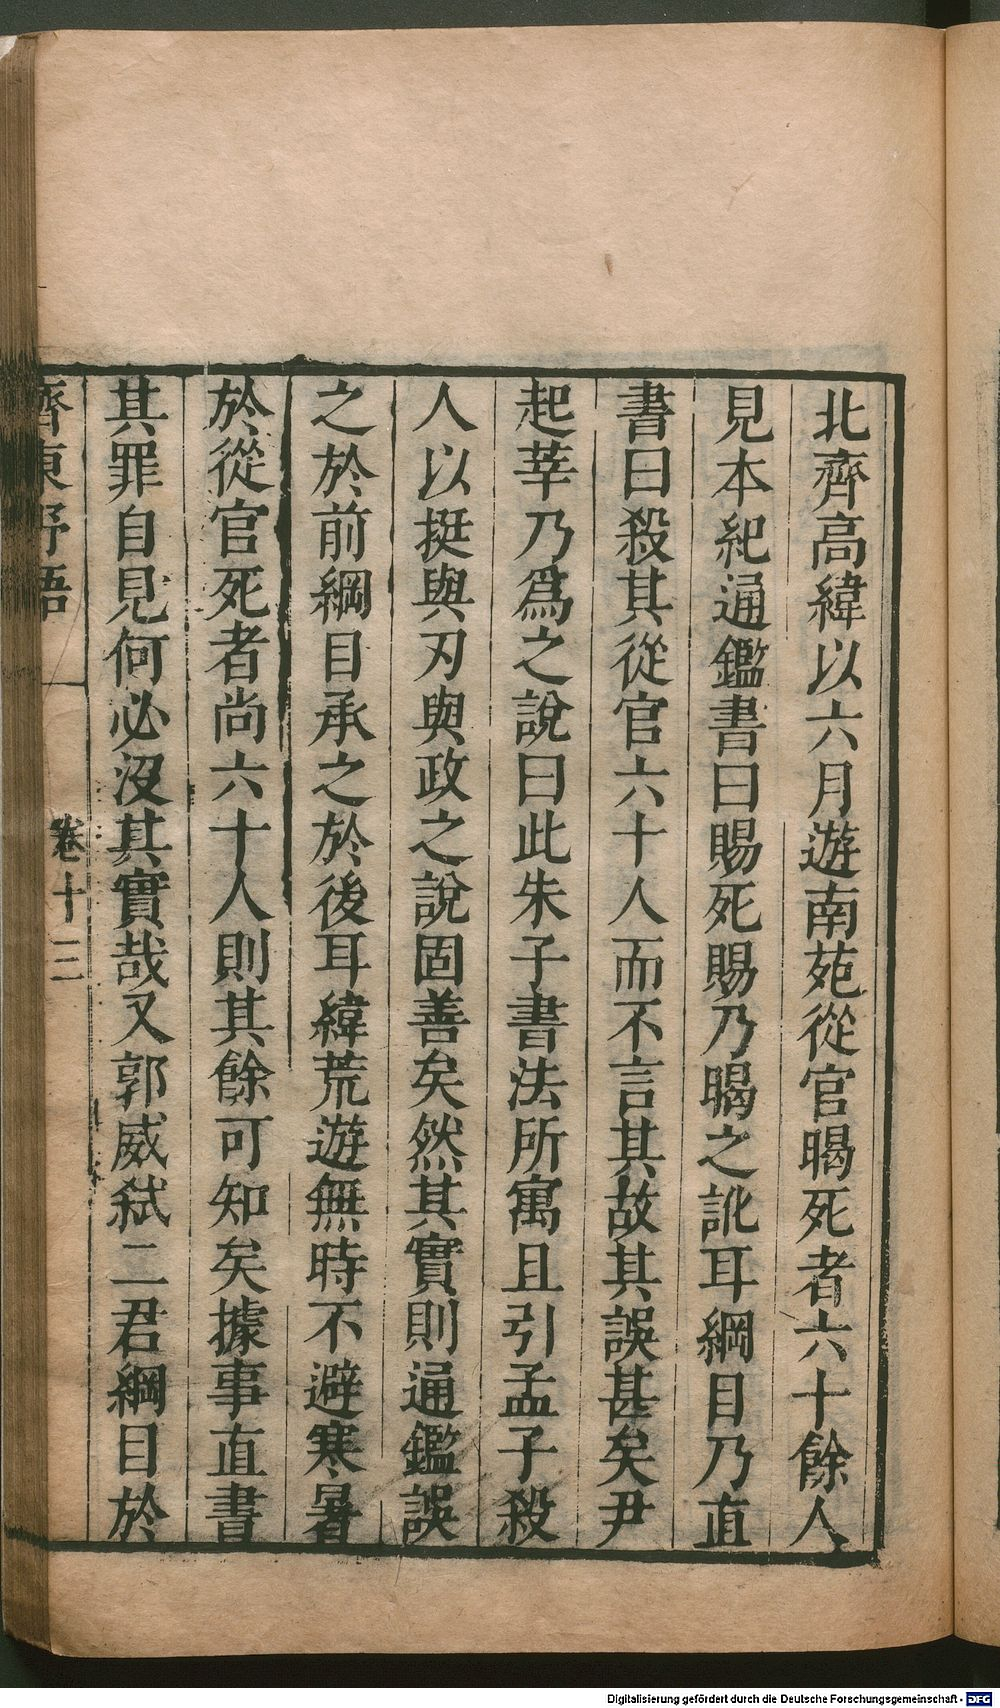 北齊高緯以六月遊南苑從官暍死者六十餘人
見本紀通鑑書曰賜死賜乃暍之訛耳綱目乃直
書曰殺其從官六十人而不言其故其誤甚矣尹
起莘乃爲之說曰此朱子書法所寓且引孟子殺
人以挺與刃與政之說固善矣然其實則通鑑誤
之於前綱目承之於後耳緯荒遊無時不避寒暑
於從官死者尚六十人則其餘可知矣據事直書
其罪自見何必沒其實哉又郭威弑二君綱目於
齊東野語
卷十三
Digitalisierung gefördert durch die Deutsche Forschungsgemeinschaft - DFG